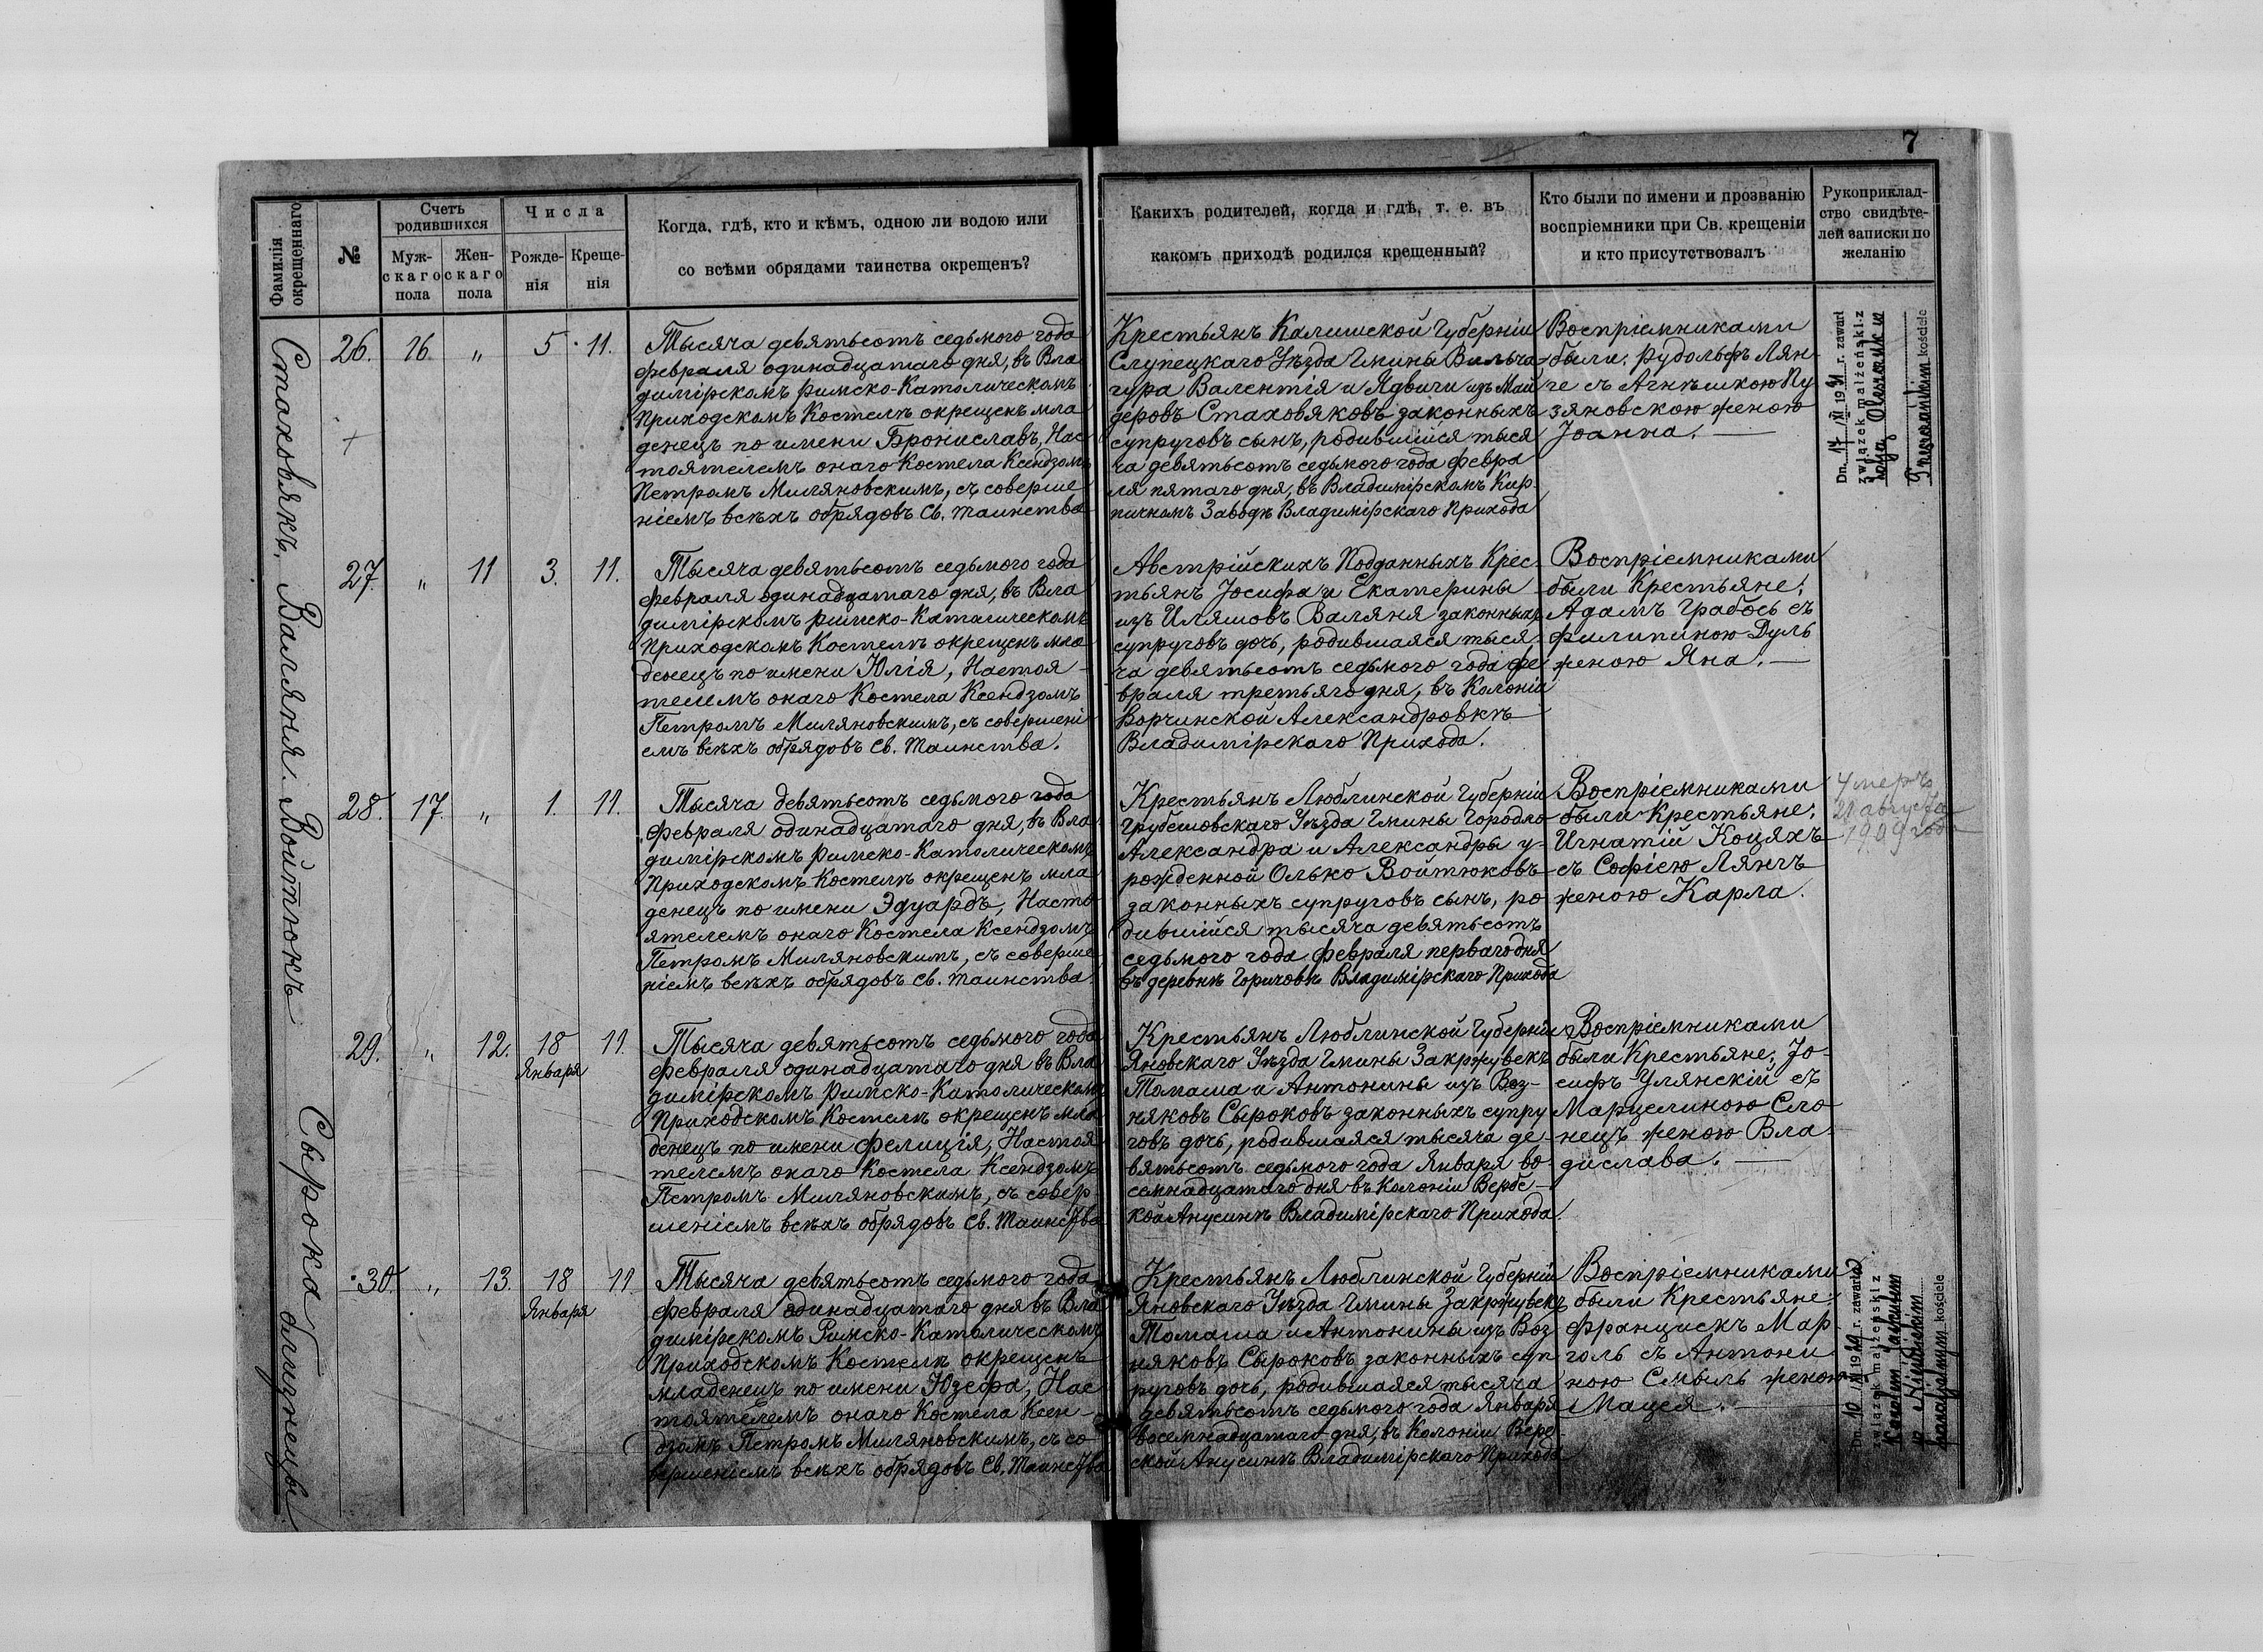 7
Фамилія окрещеннаго
№
Счетъ родившихся
Муж-скаго пола
Жен-скаго пола
Числа
Рожде-нія
Креще-нія
Когда, гдѣ, кто и кѣмъ, одною ли водою или
со всѣми обрядами таинства окрещенъ?
Какихъ родителей, когда и гдѣ, т. е. въ
какомъ приходѣ родился крещенный?
Кто были по имени и прозванію
воспріемники при Св. крещеніи
и кто присутствовалъ
Рукоприклад-
ство свидѣте-
лей записки по
желанію
Стаховякъ.
26. 16. " 5 11.
Тысяча девятьсотъ седьмого года
февраля одинадцатаго дня, въ Вла
димірскомъ Римско-Католическомъ
Приходскомъ Костелѣ окрещенъ мла
денецъ по имени Брониславъ, Нас
тоятелемъ онаго Костела Ксендзомъ
Петромъ Миляновскимъ, съ соверше
ніемъ всѣхъ обрядовъ Св. таинства
Крестьянъ Калишской Губерніи
Слупецкаго Уѣзда Гмины Вильча
гура Валентія и Ядвиги изъ Май
деровъ Стаховяковъ законныхъ
супруговъ сынъ, родившійся тыся
ча девятьсотъ седьмого года февра
ля пятаго дня, въ Владимірскомъ Кир
пичномъ Заводѣ Владимірскаго Прихода
Воспріемниками
были: Рудольфъ Лян
ге съ Агнѣшкою Пу
зяновскою женою
Іоанна.
Dn. 17/XI 1931 r. zawarł
związek małżeński z
kościele
Валяня.
27. " 11 3. 11.
Тысяча девятьсотъ седьмого года
февраля одинадцатаго дня, въ Вла
димірскомъ Римско-Католическомъ
Приходскомъ Костелѣ окрещенъ мла
денецъ по имени Юлія, Настоя
телемъ онаго Костела Ксендзомъ
Петромъ Миляновскимъ, съ совершені
емъ всѣхъ обрядовъ Св. Таинства.
Австрійскихъ Подданныхъ Крес
тьянъ Іосифа и Екатерины
изъ Иляшовъ Валяня законныхъ
супруговъ дочь, родившаяся тыся
ча девятьсотъ седьмого года фе
враля третьяго дня, въ Колоніи
Ворчинской Александровкѣ
Владимірскаго Прихода.
Воспріемниками
были Крестьяне:
Адамъ Грабось съ
Филипиною Дуль
женою Яна.
Войтюкъ
28. 17. " 1. 11.
Тысяча девятьсотъ седьмого года
февраля одинадцатаго дня, въ Вла
димірскомъ Римско-Католическомъ
Приходскомъ Костелѣ окрещенъ мла
денецъ по имени Эдуардъ, Насто
ятелемъ онаго Костела Ксендзомъ
Петромъ Миляновскимъ, съ соверше
ніемъ всѣхъ обрядовъ Св. таинства.
Крестьянъ Люблинской Губерніи
Грубешовскаго Уѣзда Гмины Городло
Александра и Александры у-
рожденной Олько Войтюковъ
законныхъ супруговъ сынъ, ро
дившійся тысяча девятьсотъ
седьмого года февраля перваго дня
въ деревнѣ Горичовѣ Владимірскаго Прихода
Воспріемниками
были Крестьяне:
Игнатій Коцяхъ
съ Софіею Лянгъ
женою Карла.
Умеръ
21 августа
1909 года
Сырока близнецы
29. " 12. 18 Января 11.
Тысяча девятьсотъ седьмого года
февраля одинадцатаго дня въ Вла
димірскомъ Римско-Католическомъ
Приходскомъ Костелѣ окрещенъ мла
денецъ по имени Фелиція, Настоя
телемъ онаго Костела Ксендзомъ
Петромъ Миляновскимъ, съ совер
шеніемъ всѣхъ обрядовъ Св. Таинства
Крестьянъ Люблинской Губерніи
Яновскаго Уѣзда Гмины Закржувекъ
Томаша и Антонины изъ Воз-
няковъ Сыроковъ законныхъ супру
говъ дочь, родившаяся тысяча де-
вятьсотъ седьмого года Января во-
семнадцатаго дня въ Колоніи Вербс-
кой Анусинѣ Владимірскаго Прихода.
Воспріемниками
были Крестьяне: Іо-
сифъ Улянскій съ
Марцелиною Сло
нецъ женою Вла-
дислава.
30. " 13. 18 Января 11.
Тысяча девятьсотъ седьмого года
февраля одинадцатаго дня въ Вла
димірскомъ Римско-Католическомъ
Приходскомъ Костелѣ окрещенъ
младенецъ по имени Юзефа, Нас
тоятелемъ онаго Костела Ксен-
дзомъ Петромъ Миляновскимъ, съ со-
вершеніемъ всѣхъ обрядовъ Св. Таинства
Крестьянъ Люблинской Губерніи
Яновскаго Уѣзда Гмины Закржувекъ
Томаша и Антонины изъ Воз
няковъ Сыроковъ законныхъ суп
руговъ дочь, родившаяся тысяча
девятьсотъ седьмого года Января
восемнадцатаго дня, въ Колоніи Верб-
ской Анусинѣ Владимірскаго Прихода
Воспріемниками
были Крестьяне:
Францискъ Мар-
голь съ Антони
ною Смыль женою
Мацея.
r. zawarła
związek małżeński z
kościele